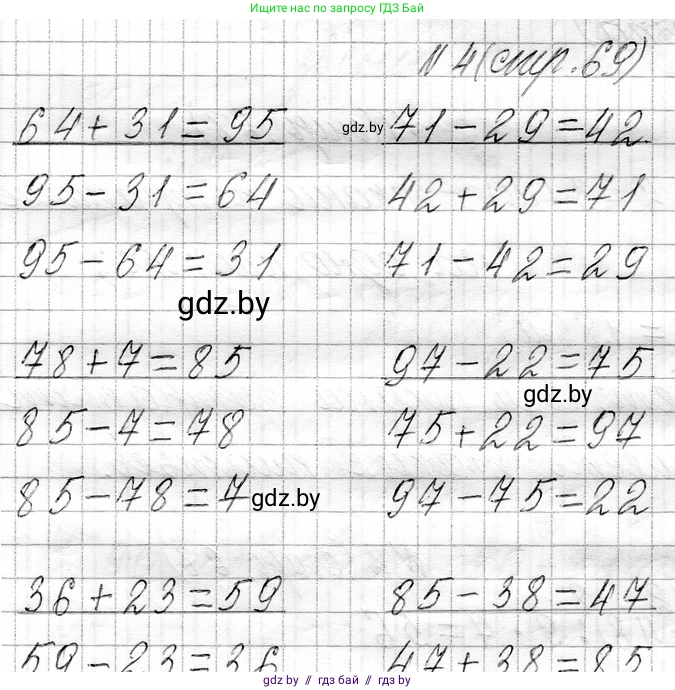 Ищите нас по запросу ГДЗ Бай
N 4 (стр. 69)
64 + 31 = 95 gdz.by 71 - 29 = 42
95 - 31 = 64 42 + 29 = 71
95 - 64 = 31 71 - 42 = 29
gdz.by
78 + 7 = 85 97 - 22 = 75
gdz.by
85 - 7 = 78 75 + 22 = 97
85 - 78 = 7 gdz.by 97 - 75 = 22
36 + 23 = 59 85 - 38 = 47
59 - 23 = 36 47 + 38 = 85
gdz.by // гдз бай // gdz.by